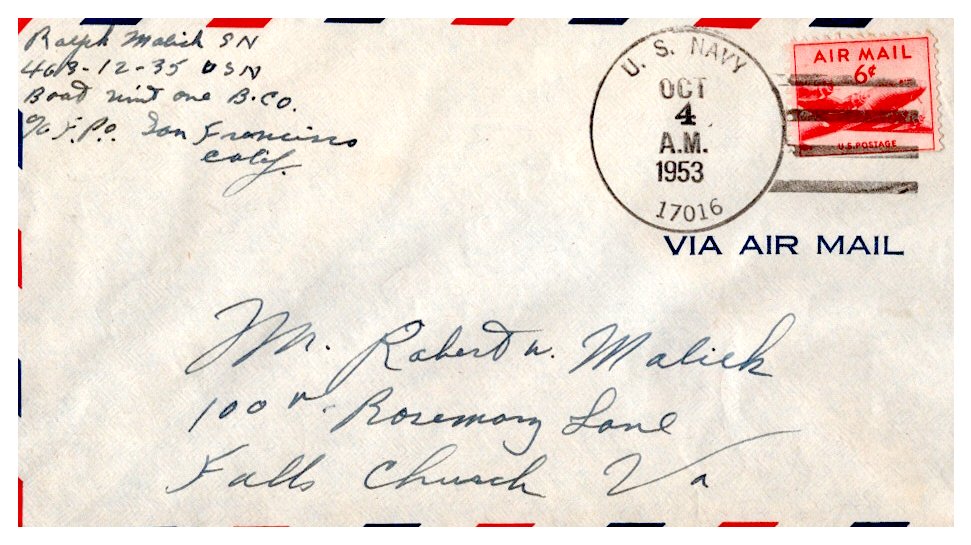 Ralph Malick SN
463-12-35 USN
Boat Unit one B.CO.
c/o F.P.O. San Francisco
Calif.
U. S. NAVY
OCT
4
A.M.
1953
17016
AIR MAIL
6¢
U.S. POSTAGE
VIA AIR MAIL
Mr. Robert W. Malick
100 W. Rosemary Lane
Falls Church Va